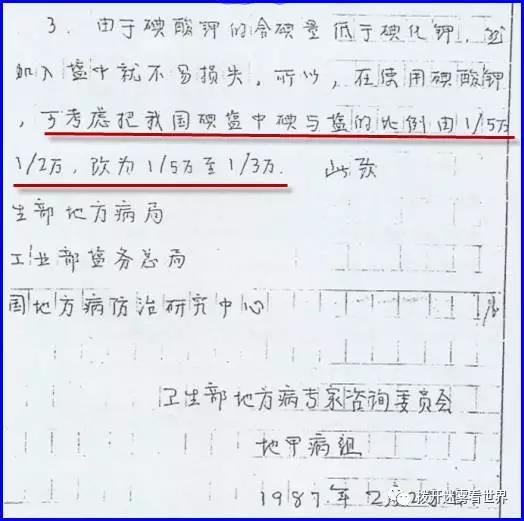 3. 由于碘酸钾的含碘量低于碘化钾,
加入盐中就不易损失,所以,在使用碘酸钾
,可考虑把我国碘盐中碘与盐的比例由1/5万
1/2万,改为1/5万至1/3万. 此致
生部地方病局
工业部盐务总局
国地方病防治研究中心
卫生部地方病专家咨询委员会
地甲病组
1987年2月2
拨开迷雾看世界